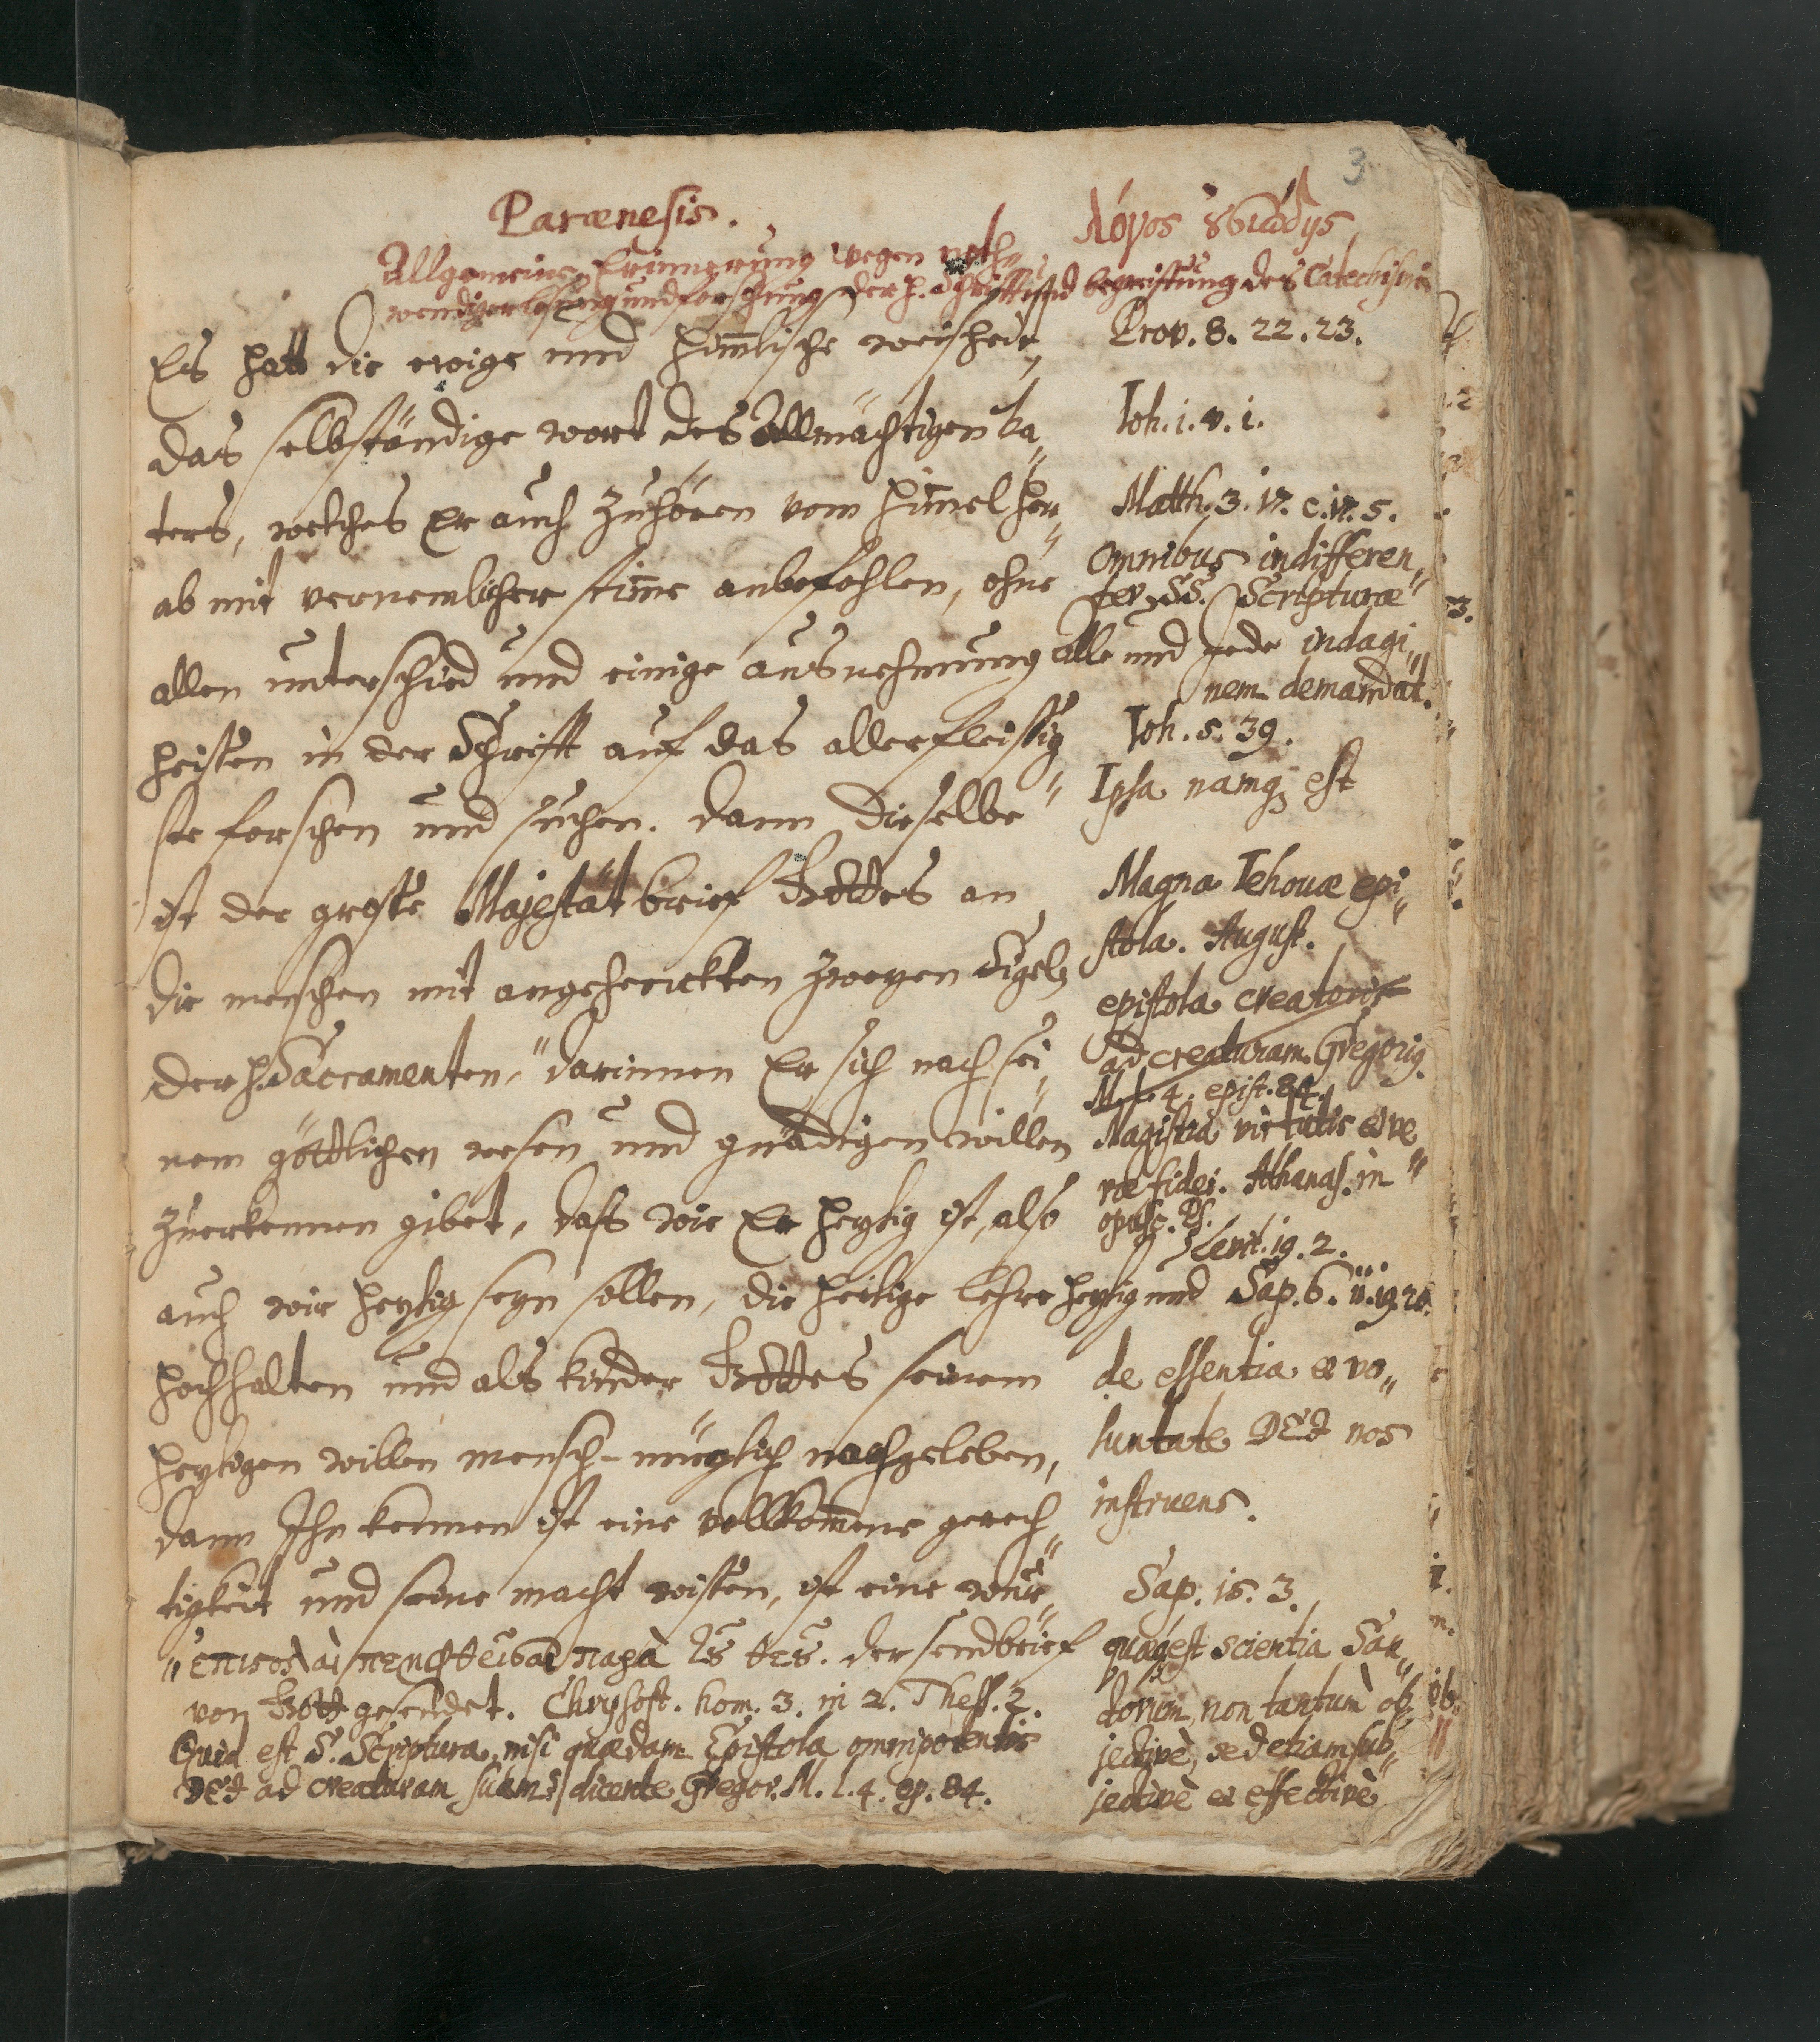 3
Parænesis.
λόγος οὐσιώδης
Allgemeine Erinnerung wegen noth„
wendiger lesung und forschung der H. Schrifft und begreiffung des Catechismi
Es hatt die ewige und himlische weisheit,
das selbständige wort des Allmächtigen Va„
ters, welches Er auch zuhören vom himel her„
ab mit vernemlicher stime anbefohlen, ohne
allen unterschied und einige ausnehmung alle und jede
heissen in der Schrifft auf das allerfleissig„
ste forschen und suchen. dann dieselbe
ist der grosse Majestät brief Gottes an
die menschen mit angehenckten zweyen Sigeln
der H. Sacramenten, darinnen Er sich nach sei„
nem göttlichen wesen und gnädigen willen
zuerkennen gibet, dass wie Er heylig ist, also
auch wir heylig seyn sollen, die heilige lehre heylig und
hochhalten und als kinder Gottes seinem
heyligen willen mensch-müglich nachgeleben,
dann Ihn kennen ist eine vollkomene gerech„
tigkeit und seine macht wissen, ist eine wur„
" ἐπιστολαὶ πεμφθεῖσαι παρὰ τοῦ θεοῦ. der sendbrief
von Gott gesendet. Chrysost. hom. 3. in 2. Thess. 2.
Quid est S. Scriptura, nisi quædam Epistola omnipotentis
DEI ad creaturam suam? dicente Gregor. M. l. 4. ep. 84.
Prov. 8. 22. 23.
Ioh. i. v. i.
Matth. 3. 17. c. 17. 5.
Omnibus indifferen„
ter SS. Scripturæ
indagi„
nem demandat.
Ioh. 5. 39.
Ipsa namq; est
Magna Iehovæ epi„
stola. August.
epistola creatoris
ad creaturam. Gregorig.
M. l. 4. epist. 84.
Magistra virtutis & ve„
ræ fidei. Athanas. in
opusc. Ps.
Levit. 19. 2.
Sap. 6. 11. 19. 20.
de essentia & vo„
luntate DEI nos
instruens.
Sap. 15. 3.
quæ est scientia San„
ctorum, non tantùm ob„
jectivè, sed etiam sub„
jectivè & effectivè